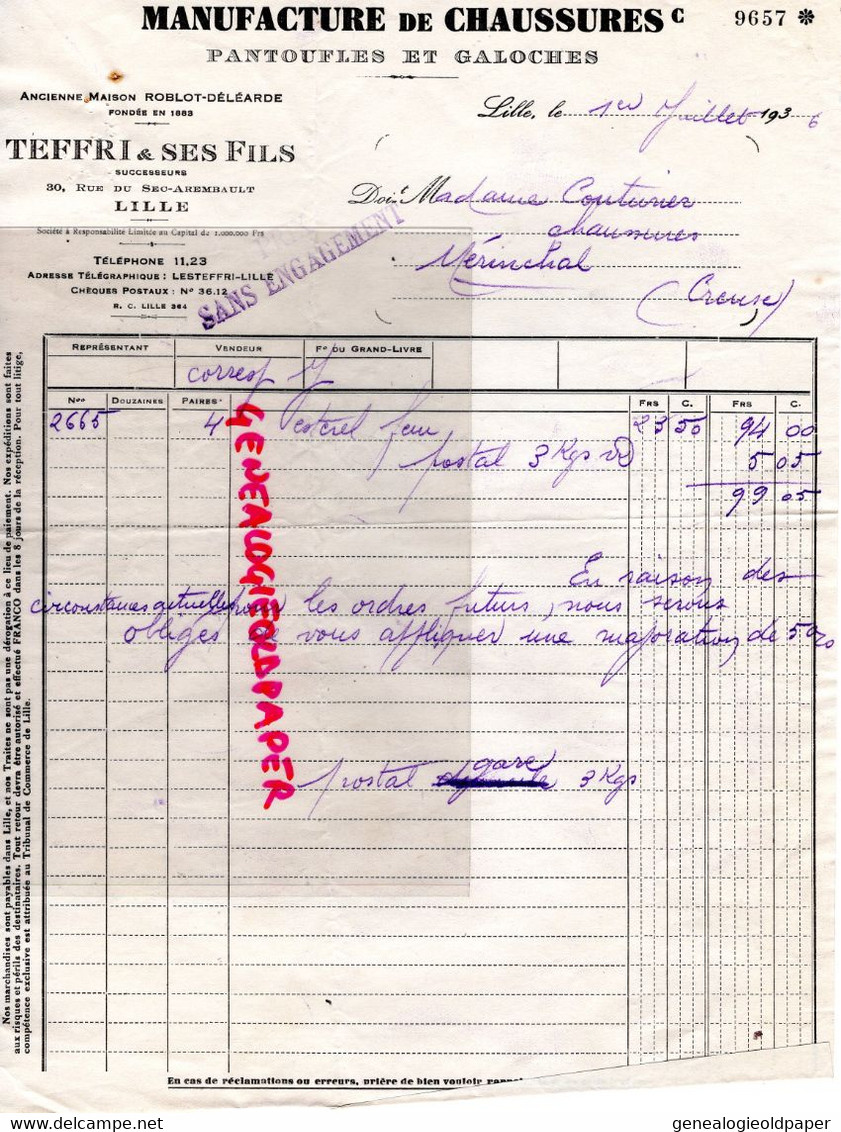 MANUFACTURE DE CHAUSSURES C
9657 *
PANTOUFLES ET GALOCHES
ANCIENNE MAISON ROBLOT-DÉLÉARDE
FONDÉE EN 1883
TEFFRI & SES FILS
SUCCESSEURS
30, RUE DU SEC-AREMBAULT
LILLE
Société à Responsabilité Limitée au Capital de 1.000.000 Frs
TÉLÉPHONE 11,23
ADRESSE TÉLÉGRAPHIQUE : LESTEFFRI-LILLE
CHÈQUES POSTAUX : No 36.12
R. C. LILLE 364
Lille, le 1er Juillet 1936
Doit Madame Couturier
chaussures
Mérinchal
(Creuse)
SANS ENGAGEMENT
REPRÉSENTANT VENDEUR Fo DU GRAND-LIVRE
corresp
Nos DOUZAINES PAIRES FRS C. FRS C.
2665 4 esterel feu 23 50 94 00
postal 3 Kgs 5 05
99 05
En raison des
circonstances actuelles pour les ordres futurs, nous serons
obligés de vous appliquer une majoration de 5 %
postal gare 3 Kgs
GENEALOGIEOLDPAPER
Nos marchandises sont payables dans Lille, et nos Traites ne sont pas une dérogation à ce lieu de paiement. Nos expéditions sont faites
aux risques et périls des destinataires. Tout retour devra être autorisé et effectué FRANCO dans les 8 jours de la réception. Pour tout litige,
compétence exclusive est attribuée au Tribunal de Commerce de Lille.
En cas de réclamations ou erreurs, prière de bien vouloir
genealogieoldpaper